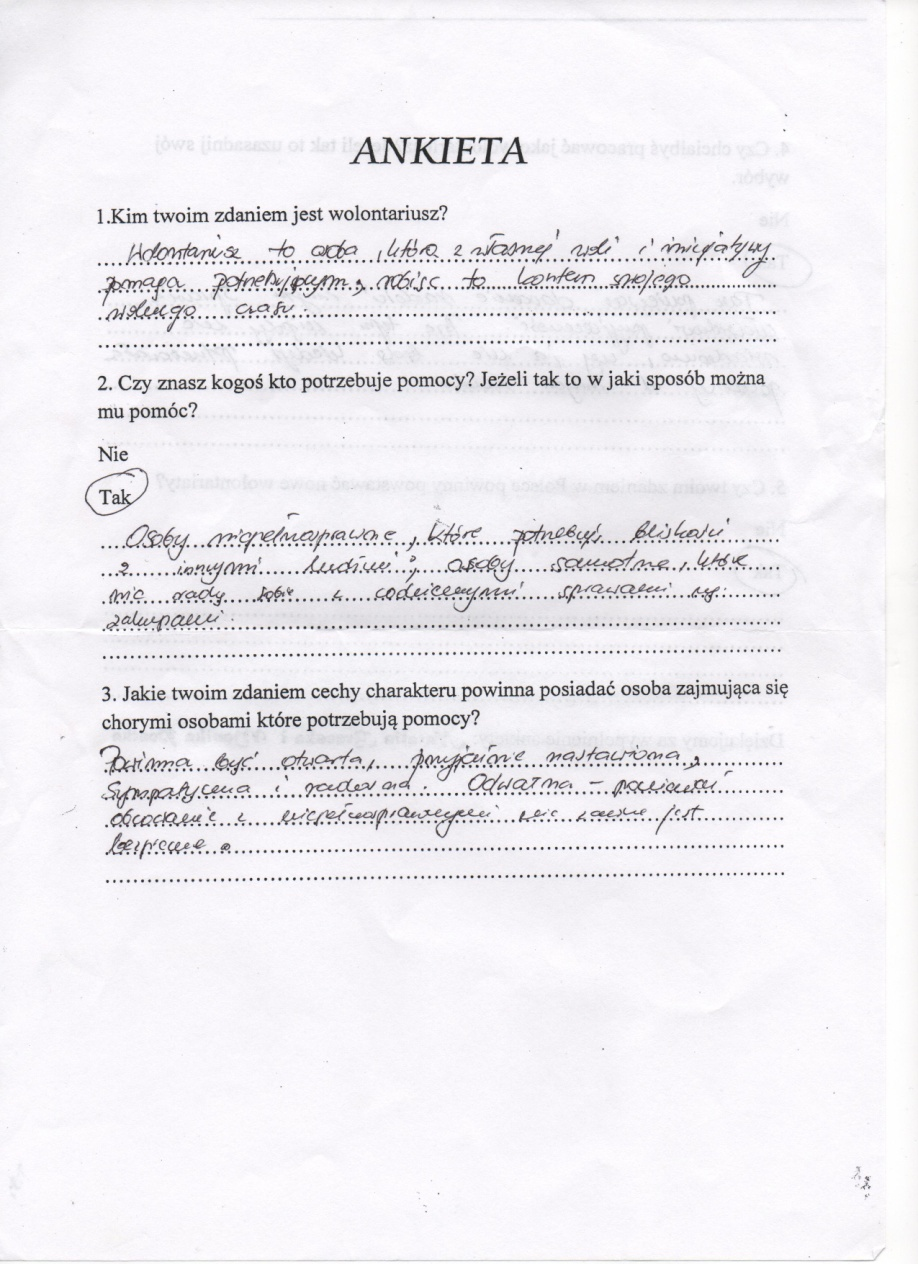 ANKIETA
1.Kim twoim zdaniem jest wolontariusz?
Wolontariusz to osoba, która z własnej woli i inicjatywy
pomaga potrzebującym, robiąc to kosztem swojego
wolnego czasu.
2. Czy znasz kogoś kto potrzebuje pomocy? Jeżeli tak to w jaki sposób można
mu pomóc?
Nie
Tak
Osoby niepełnosprawne, które potrzebują bliskości
z innymi ludźmi, osoby samotne, które
nie radzą sobie z codziennymi sprawami np.
zakupami.
3. Jakie twoim zdaniem cechy charakteru powinna posiadać osoba zajmująca się
chorymi osobami które potrzebują pomocy?
Powinna być otwarta, przyjaźnie nastawiona,
Sympatyczna i radosna. Odważna – ponieważ
obcowanie z niepełnosprawnymi nie zawsze jest
bezpieczne.